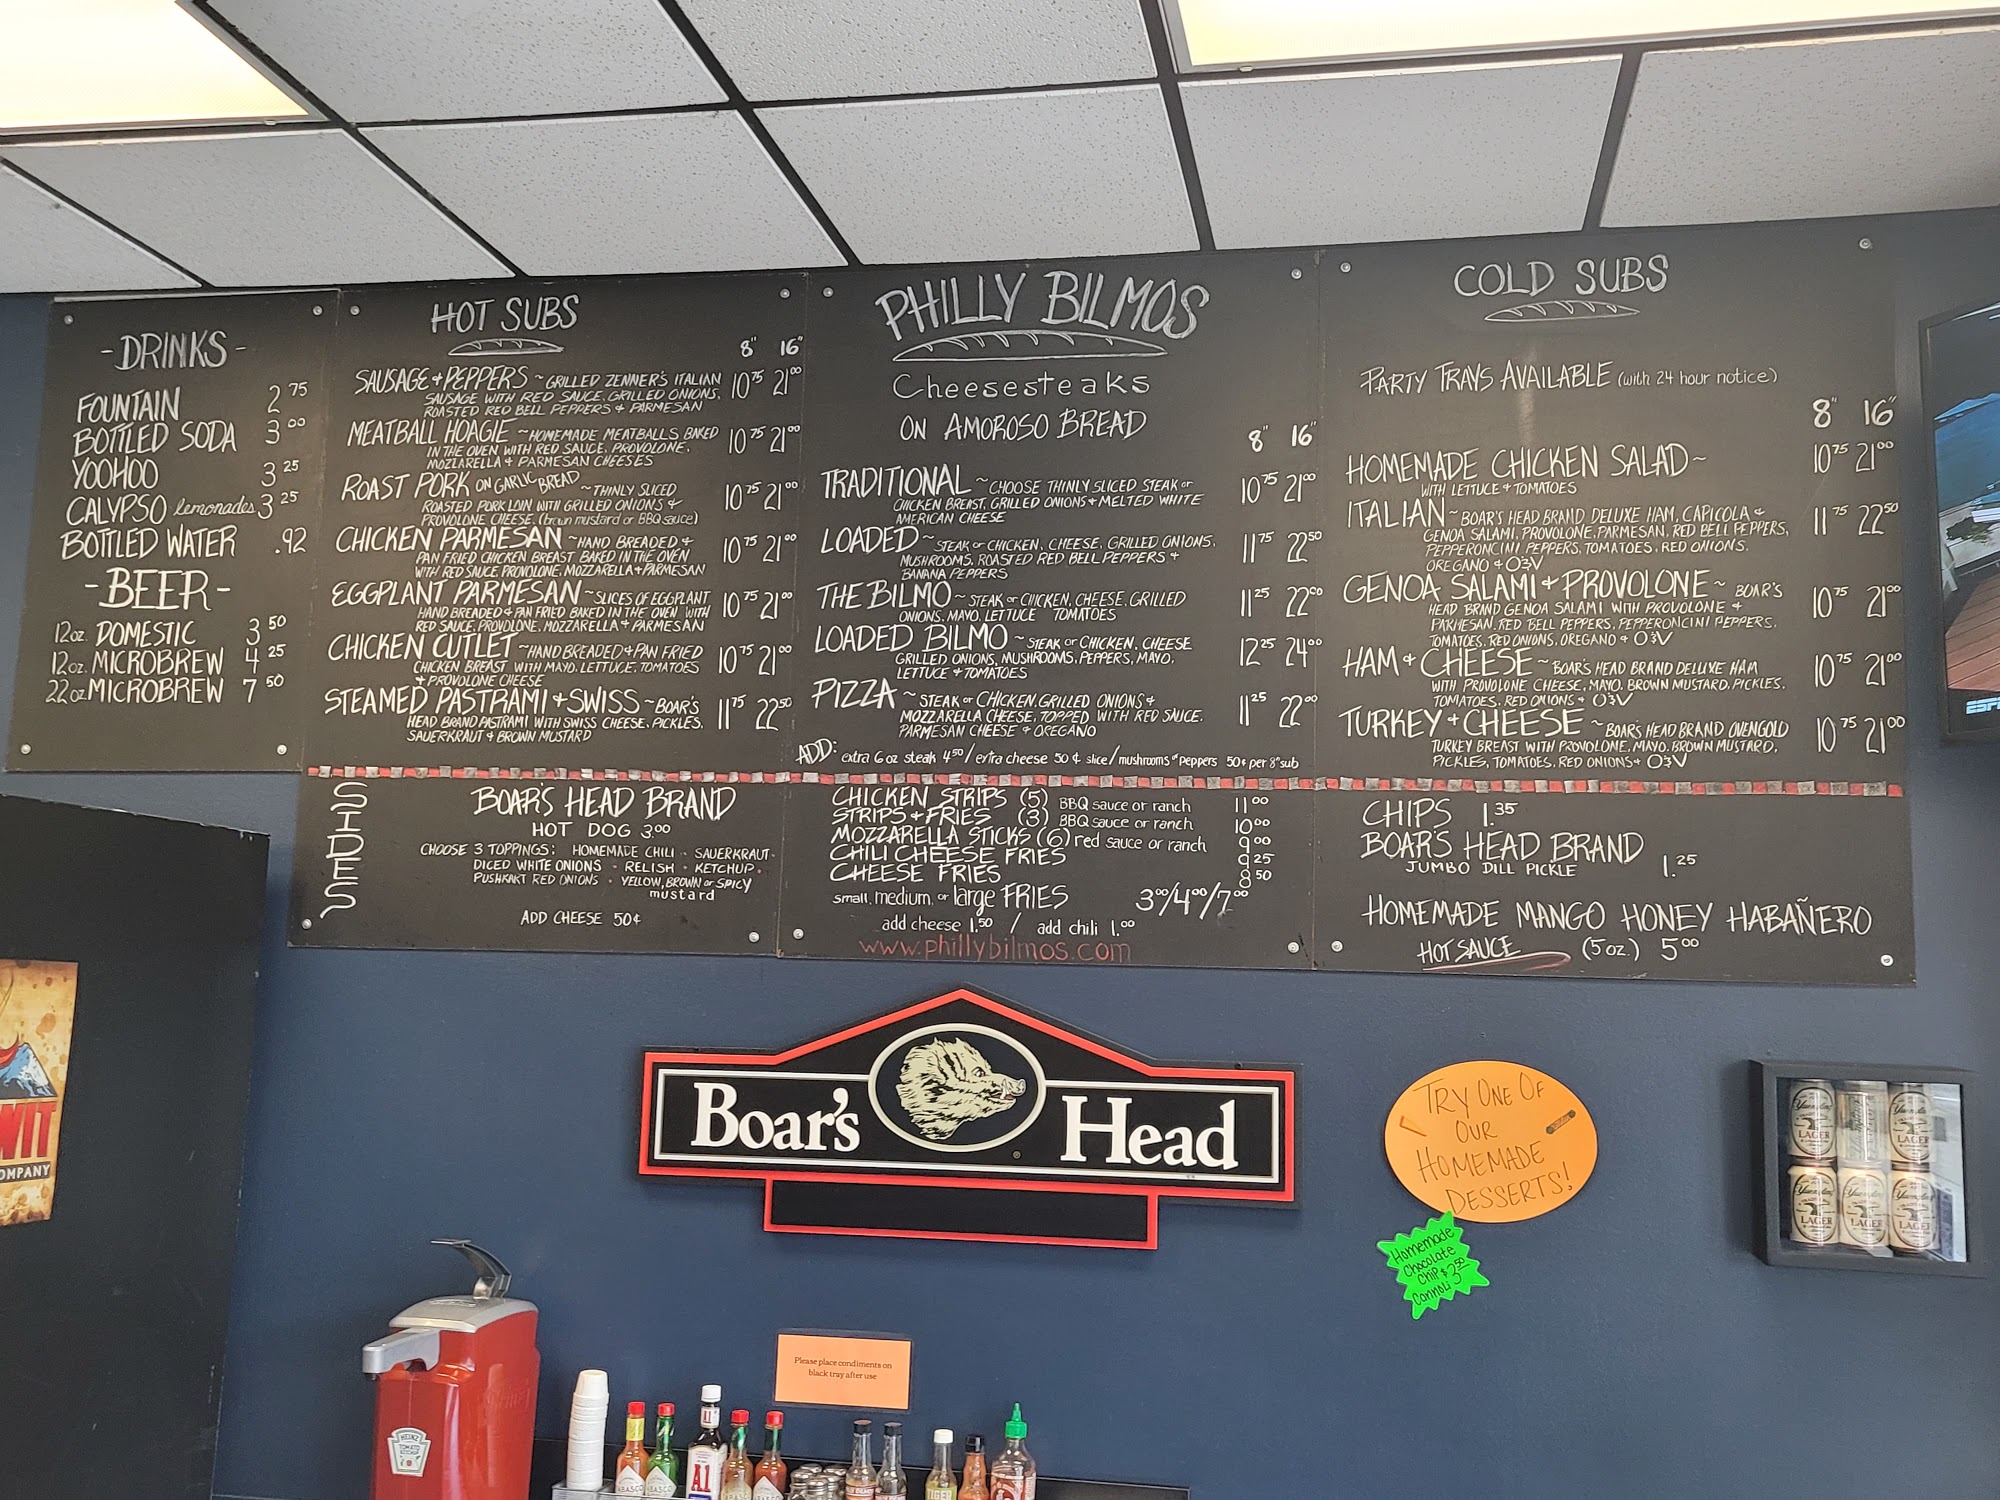 - DRINKS -
FOUNTAIN 2 75
BOTTLED SODA 3 00
YOOHOO 3 25
CALYPSO lemonades 3 25
BOTTLED WATER .92
- BEER -
12oz. DOMESTIC 3 50
12oz. MICROBREW 4 25
22oz MICROBREW 7 50
HOT SUBS
8" 16"
SAUSAGE + PEPPERS ~ GRILLED ZENNER'S ITALIAN 10 75 21 00
SAUSAGE WITH RED SAUCE, GRILLED ONIONS,
ROASTED RED BELL PEPPERS + PARMESAN
MEATBALL HOAGIE ~ HOMEMADE MEATBALLS BAKED 10 75 21 00
IN THE OVEN WITH RED SAUCE, PROVOLONE,
MOZZLARELLA + PARMESAN CHEESES
ROAST PORK ON GARLIC BREAD ~ THINLY SLICED 10 75 21 00
ROASTED PORK LOIN WITH GRILLED ONIONS +
PROVOLONE CHEESE. (brown mustard or BBQ sauce)
CHICKEN PARMESAN ~ HAND BREADED + 10 75 21 00
PAN FRIED CHICKEN BREAST BAKED IN THE OVEN
WITH RED SAUCE, PROVOLONE, MOZZARELLA + PARMESAN
EGGPLANT PARMESAN ~ SLICES OF EGGPLANT 10 75 21 00
HAND BREADED + PAN FRIED BAKED IN THE OVEN WITH
RED SAUCE, PROVOLONE, MOZZARELLA + PARMESAN
CHICKEN CUTLET ~ HAND BREADED + PAN FRIED 10 75 21 00
CHICKEN BREAST WITH MAYO, LETTUCE, TOMATOES
+ PROVOLONE CHEESE
STEAMED PASTRAMI + SWISS ~ BOAR'S 11 75 22 50
HEAD BRAND PASTRAMI WITH SWISS CHEESE, PICKLES,
SAUERKRAUT + BROWN MUSTARD
PHILLY BILMOS
Cheesesteaks
ON AMOROSO BREAD
8" 16"
TRADITIONAL ~ CHOOSE THINLY SLICED STEAK or 10 75 21 00
CHICKEN BREAST, GRILLED ONIONS + MELTED WHITE
AMERICAN CHEESE
LOADED ~ STEAK or CHICKEN, CHEESE, GRILLED ONIONS, 11 75 22 50
MUSHROOMS, ROASTED RED BELL PEPPERS +
BANANA PEPPERS
THE BILMO ~ STEAK or CHICKEN, CHEESE, GRILLED 11 25 22 00
ONIONS, MAYO, LETTUCE TOMATOES
LOADED BILMO ~ STEAK or CHICKEN, CHEESE 12 25 24 00
GRILLED ONIONS, MUSHROOMS, PEPPERS, MAYO,
LETTUCE + TOMATOES
PIZZA ~ STEAK or CHICKEN, GRILLED ONIONS + 11 25 22 00
MOZZARELLA CHEESE, TOPPED WITH RED SAUCE,
PARMESAN CHEESE + OREGANO
ADD: extra 6 oz steak 4.50 / extra cheese 50 ¢ slice / mushrooms or peppers 50¢ per 8" sub
COLD SUBS
PARTY TRAYS AVAILABLE (with 24 hour notice)
8" 16"
HOMEMADE CHICKEN SALAD ~ 10 75 21 00
WITH LETTUCE + TOMATOES
ITALIAN ~ BOAR'S HEAD BRAND DELUXE HAM, CAPICOLA + 11 75 22 50
GENOA SALAMI, PROVOLONE, PARMESAN, RED BELL PEPPERS,
PEPPERONCINI PEPPERS, TOMATOES, RED ONIONS,
OREGANO + O&V
GENOA SALAMI + PROVOLONE ~ BOAR'S 10 75 21 00
HEAD BRAND GENOA SALAMI WITH PROVOLONIE +
PARMESAN, RED BELL PEPPERS, PEPPERONCINI PEPPERS,
TOMATOES, RED ONIONS, OREGANO + O&V
HAM + CHEESE ~ BOAR'S HEAD BRAND DELUXE HAM 10 75 21 00
WITH PROVOLONE CHEESE, MAYO, BROWN MUSTARD, PICKLES,
TOMATOES, RED ONIONS + O&V
TURKEY + CHEESE ~ BOARS HEAD BRAND OVENGOLD 10 75 21 00
TURKEY BREAST WITH PROVOLONE, MAYO, BROWN MUSTARD,
PICKLES, TOMATOES, RED ONIONS + O&V
SIDES
BOAR'S HEAD BRAND
HOT DOG 3.00
CHOOSE 3 TOPPINGS: HOMEMADE CHILI - SAUERKRAUT -
DICED WHITE ONIONS - RELISH - KETCHUP -
PUSHKART RED ONIONS - YELLOW, BROWN or SPICY
mustard
ADD CHEESE 50¢
CHICKEN STRIPS (5) BBQ sauce or ranch 11 00
STRIPS + FRIES (3) BBQ sauce or ranch 10 00
MOZZARELLA STICKS (6) red sauce or ranch 9 00
CHILI CHEESE FRIES 9 25
CHEESE FRIES 8 50
small, medium, or large FRIES 3 00/4 00/7 00
add cheese 1.50 / add chili 1.00
www.phillybilmos.com
CHIPS 1.35
BOAR'S HEAD BRAND
JUMBO DILL PICKLE 1.25
HOMEMADE MANGO HONEY HABAÑERO
HOT SAUCE (5 oz.) 5 00
ESPN
Boar's Head
TRY ONE OF
OUR
HOMEMADE
DESSERTS!
Homemade
Chocolate
Chip $3 50
Cannoli
Yuengling
LAGER
Yuengling
LAGER
Yuengling
LAGER
Yuengling
LAGER
Yuengling
LAGER
WIT
OMPANY
Please place condiments on
black tray after use
HEINZ
TOMATO
KETCHUP
A1
A1
TABASCO
TIGER